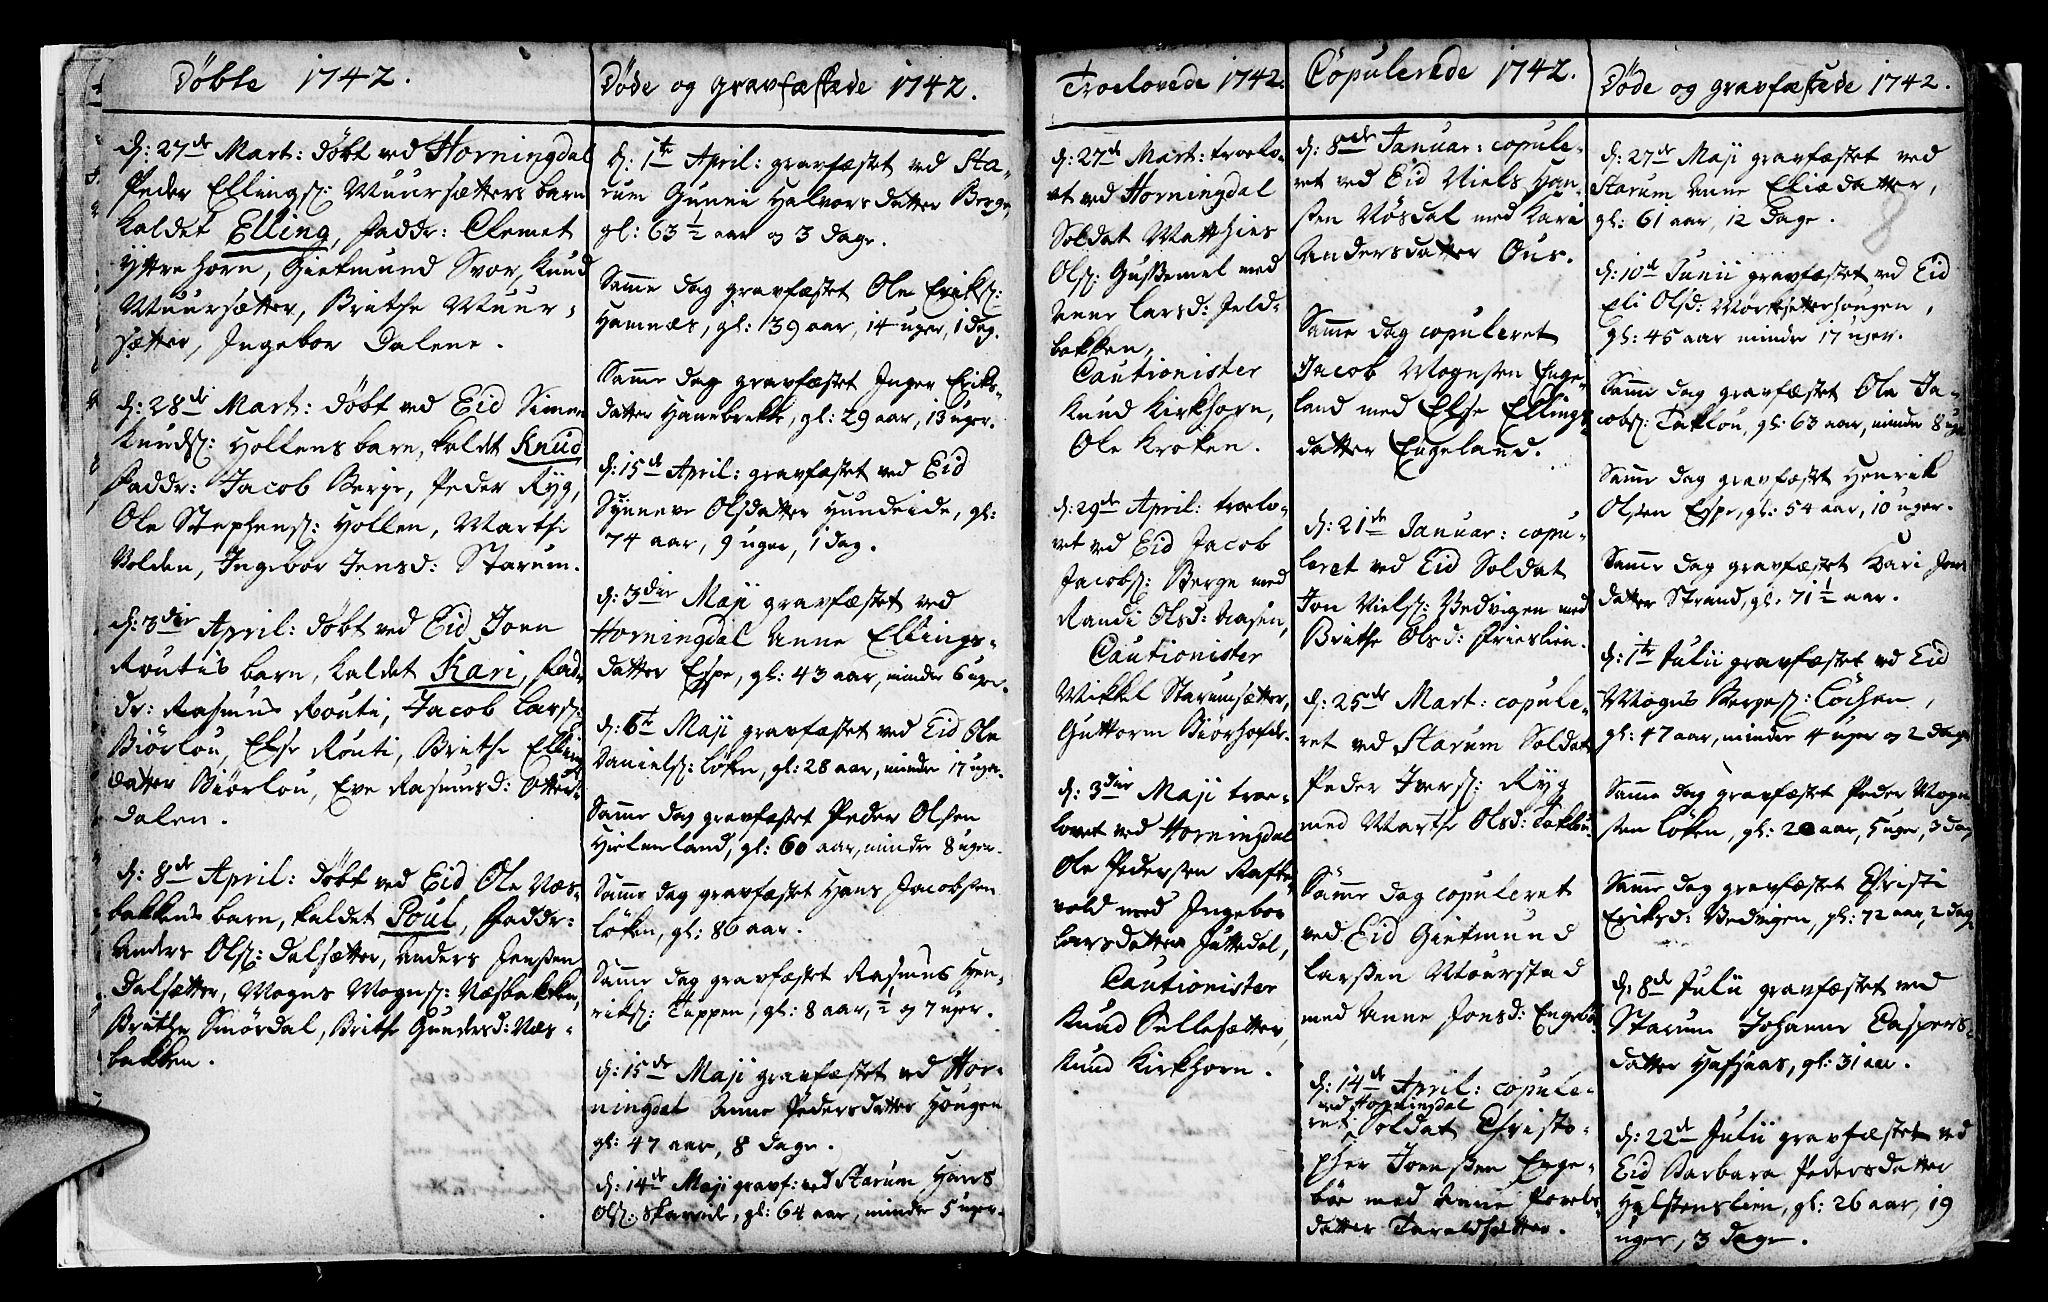 Döbte 1742.
d: 27de Mart: döbt ved Horningdal
Peder Ellings: Muursætters barn
kaldet Elling, Faddr: Clemet
Yttrehorn, Gietmund Svor, Knud
Muursætter, Brithe Muur-
sætter, Ingebor Dalene.
d: 28de Mart: döbt ved Eid Simen
Knuds: Hollens barn, kaldet Knud
Faddr: Jacob Berge, Peder Ryg,
Ole Stephens: Hollen, Marthe
Volden, Ingebor Jensd: Starum.
d: 3die April: döbt ved Eid Joen
Routis barn, kaldet Kari, Fad-
dr: Rasmus Routi, Jacob Lars:
Biörlou, Else Routi, Brithe Ellings
datter Biörlou, Eve Rasmusd: Otter-
dalen.
d: 8de April: Döbt ved Eid Ole Næs-
bakkens barn, kaldet Poul, Faddr:
Anders Ols: Dalsætter, Anders Jenssen
Dalsætter, Mogns Mogns: Næsbakken,
Brithe Smördal, Brithe Gundersd: Næs-
bakken.
Döde og gravfæstede 1742.
d: 1te April: gravfæstet ved Sta-
rum Gunni Halvorsdatter Berge,
gl: 63 1/2 aar og 3 dage.
Samme dag gravfæstet Ole Eriks:
Hamnæs, gl: 39 aar, 14 uger, 1 dag.
Samme dag gravfæstet Inger Eriks-
datter Hanebrekke, gl: 29 aar, 13 uger.
d: 15de April: gravfæstet ved Eid
Synneve Olsdatter Hundeide, gl:
74 aar, 9 uger, 1 dag.
d: 3die Maji gravfæstet ved
Horningdal Anne Ellings-
datter Espe, gl: 43 aar, mindre 6 uger.
d: 6te Maji gravfæstet ved Eid Ole
Daniels: Löken, gl: 28 aar, mindre 17 uger.
Samme dag gravfæstet Peder Olsen
Hielmeland, gl: 60 aar, mindre 8 uger.
Samme dag gravfæstet Hans Jacobsen
Löken, gl: 86 aar.
Samme dag gravfæstet Rasmus Hen-
riks: Tuppen, gl: 8 aar, 1/2 og 7 uger.
d: 15de Maji gravfæstet ved Hor-
ningdal Anne Pedersdatter Hougen
gl: 47 aar, 8 dage.
d: 14de Maji gravf: ved Starum Hans
Ols: Skarride, gl: 64 aar, mindre 5 uger.
Troelovede 1742.
d: 27de Mart: troelo-
vet ved Horningdal
Soldat Matthies
Ols: Gussemel med
Anne Larsd: Jeld-
bakken,
Cautionister
Knud Kirkhorn,
Ole Kroken.
d: 29de April: troelo-
vet ved Eid Jacob
Jacobs: Berge med
Randi Olsd: Aasen,
Cautionister
Mikkel Starumsætter,
Guttorm
d: 3die Maji troe-
lovet ved Horningdal
Ole Pedersen Rafte-
vold med Ingebor
Larsdatter Juttedal,
Cautionister
Knud Sellesætter,
Knud Kirkhorn.
Copulerede 1742.
d: 8de Januar: copule-
ret ved Eid Niels Han-
sen Nösdal med Kari
Andersdatter Ous.
Samme dag copuleret
Jacob Mognssen Enge-
land med Else Ellings-
datter Engeland.
d: 21de Januar: copu-
leret ved Eid Soldat
Jon Niels: Bedvigen med
Brithe Olsd: Frieslien.
d: 25de Mart: copule-
ret ved Starum Soldat
Peder Ivers: Ryg
med Marthe Olsd: Taklou.
Samme dag copuleret
ved Eid Gietmund
Larssen Mourstad
med Anne Jonsd: Engebö.
d: 14de April: copule-
ved Horningdal
ret: Soldat Christo-
pher Joenssen Enge-
böe med Anne Povels-
datter Taraldsætter.
Döde og gravfæstede 1742.
d: 27de Maji gravfæstet ved
Starum Anne Eliædatter,
gl: 61 aar, 12 dage.
d: 10de Junii gravfæstet ved Eid
Eli Olsd: Morksætterhougen,
gl: 45 aar mindre 17 uger.
Samme dag gravfæstet Ole Ja-
cobs: Taklou, gl: 63 aar, minde 8 uger
Samme dag gravfæstet Henrik
Olsen Espe, gl: 54 aar, 10 uger.
Samme dag gravfæstet Kari Jons
datter Strand, gl. 71 1/2 aar.
d: 1te Julii gravfæstet ved Eid
Mogns Berges: Lochen,
gl: 47 aar, mindre 4 uger og 2 dage
Samme dag gravfæstet Peder Mogn
sen Löken, gl: 20 aar, 5 uger, 3 dag
Samme dag gravfæstet Christi
Eriksd: Bedvigen, gl: 72 aar, 2 dag
d: 8de Julii gravfæstet ved
Starum Johanne Caspers-
datter Hafsaas, gl: 31 aar.
d: 22de Julii gravfæstet ved
Eid Barbara Pedersdatter
Halstenslien, gl: 26 aar, 19
uger, 3 dage.